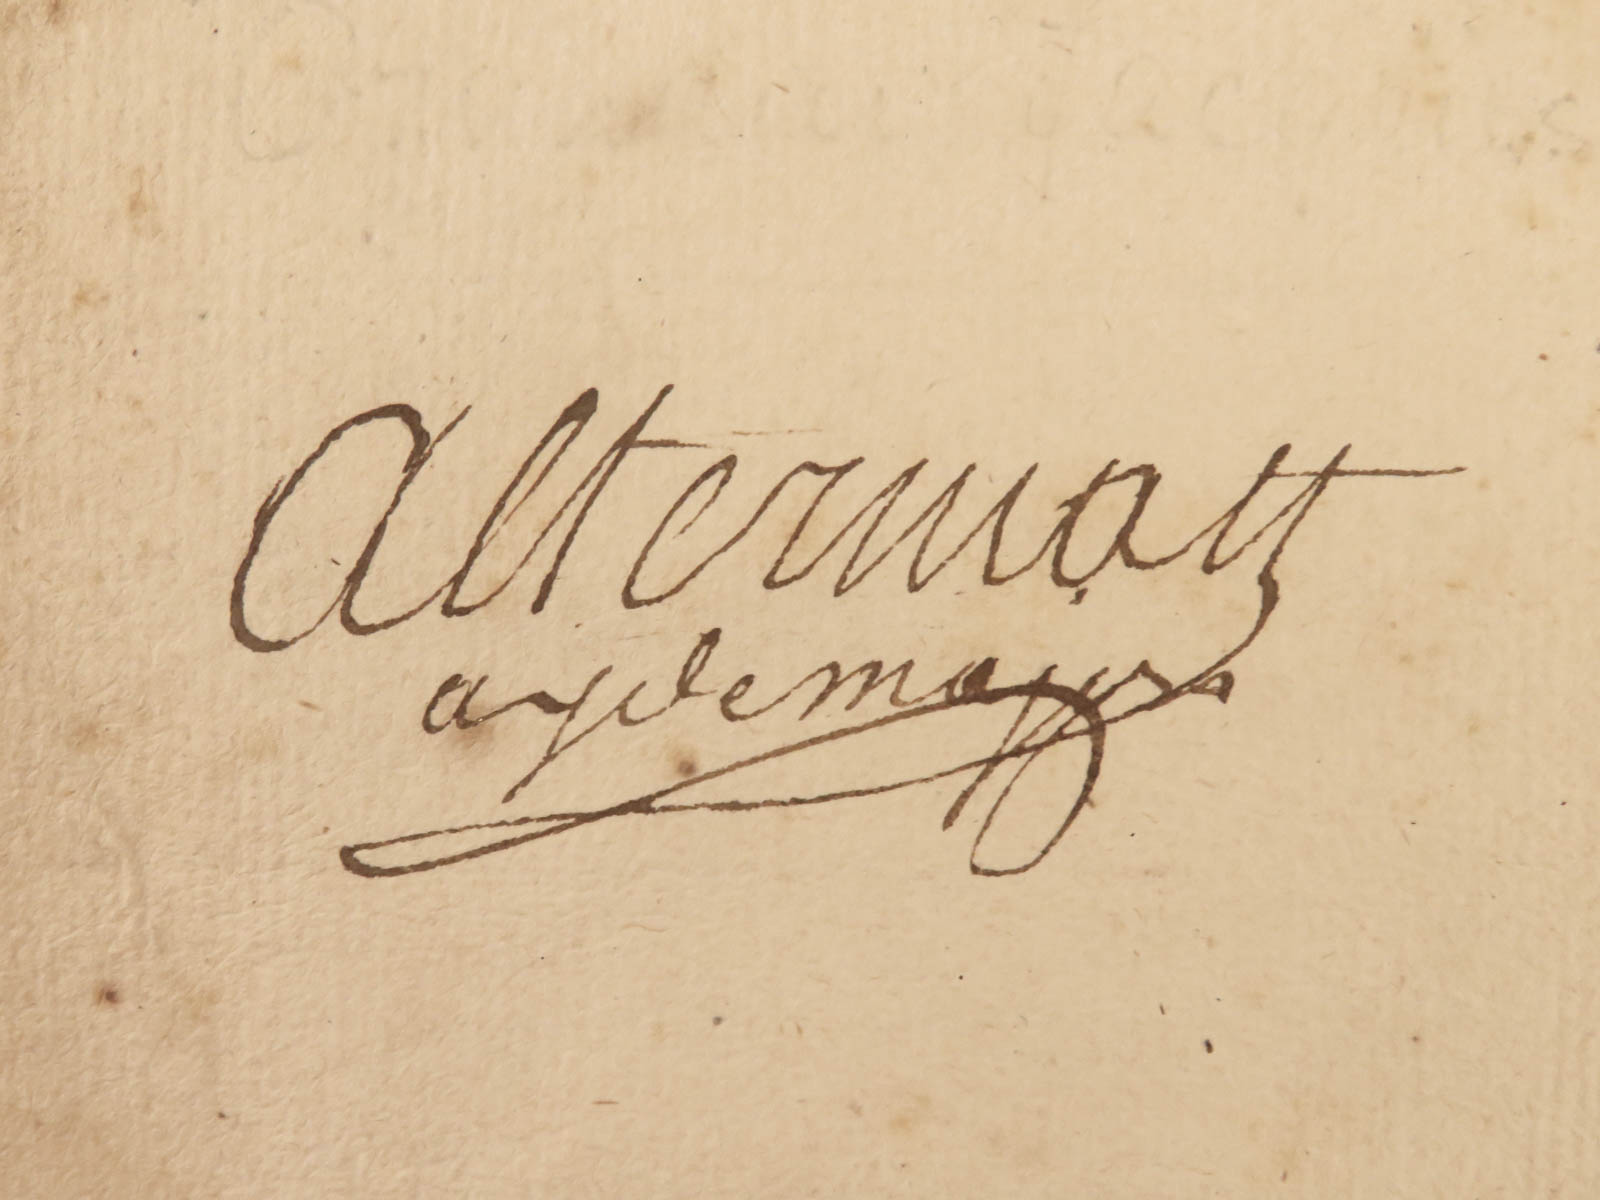 Altermatt
aydemajor